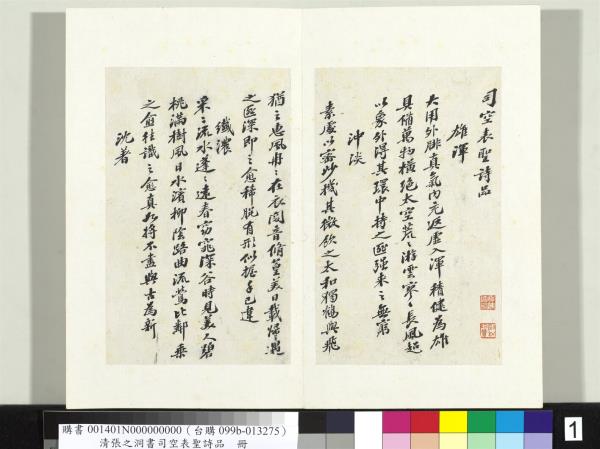 司空表聖詩品
雄渾
大用外腓真氣內充返虛入渾積健為雄
具備萬物橫絕太空荒〻游雲寥〻長風超
以象外得其環中持之匪強来之無窮
沖淡
素處以密妙機其微飲之太和獨鶴與飛
猶之惠風冉〻在衣閱音脩篁美日載歸遇
之匪深即之愈稀脫有形似握手已違
纖濃
采〻流水蓬〻遠春窈窕深谷時見美人碧
桃滿樹風日水濱柳陰路曲流鶯比鄰乘
之愈往識之愈真如將不盡與古為新
沈著
購書 001401N000000000 (台購 099b-013275)
清張之洞書司空表聖詩品 冊
1